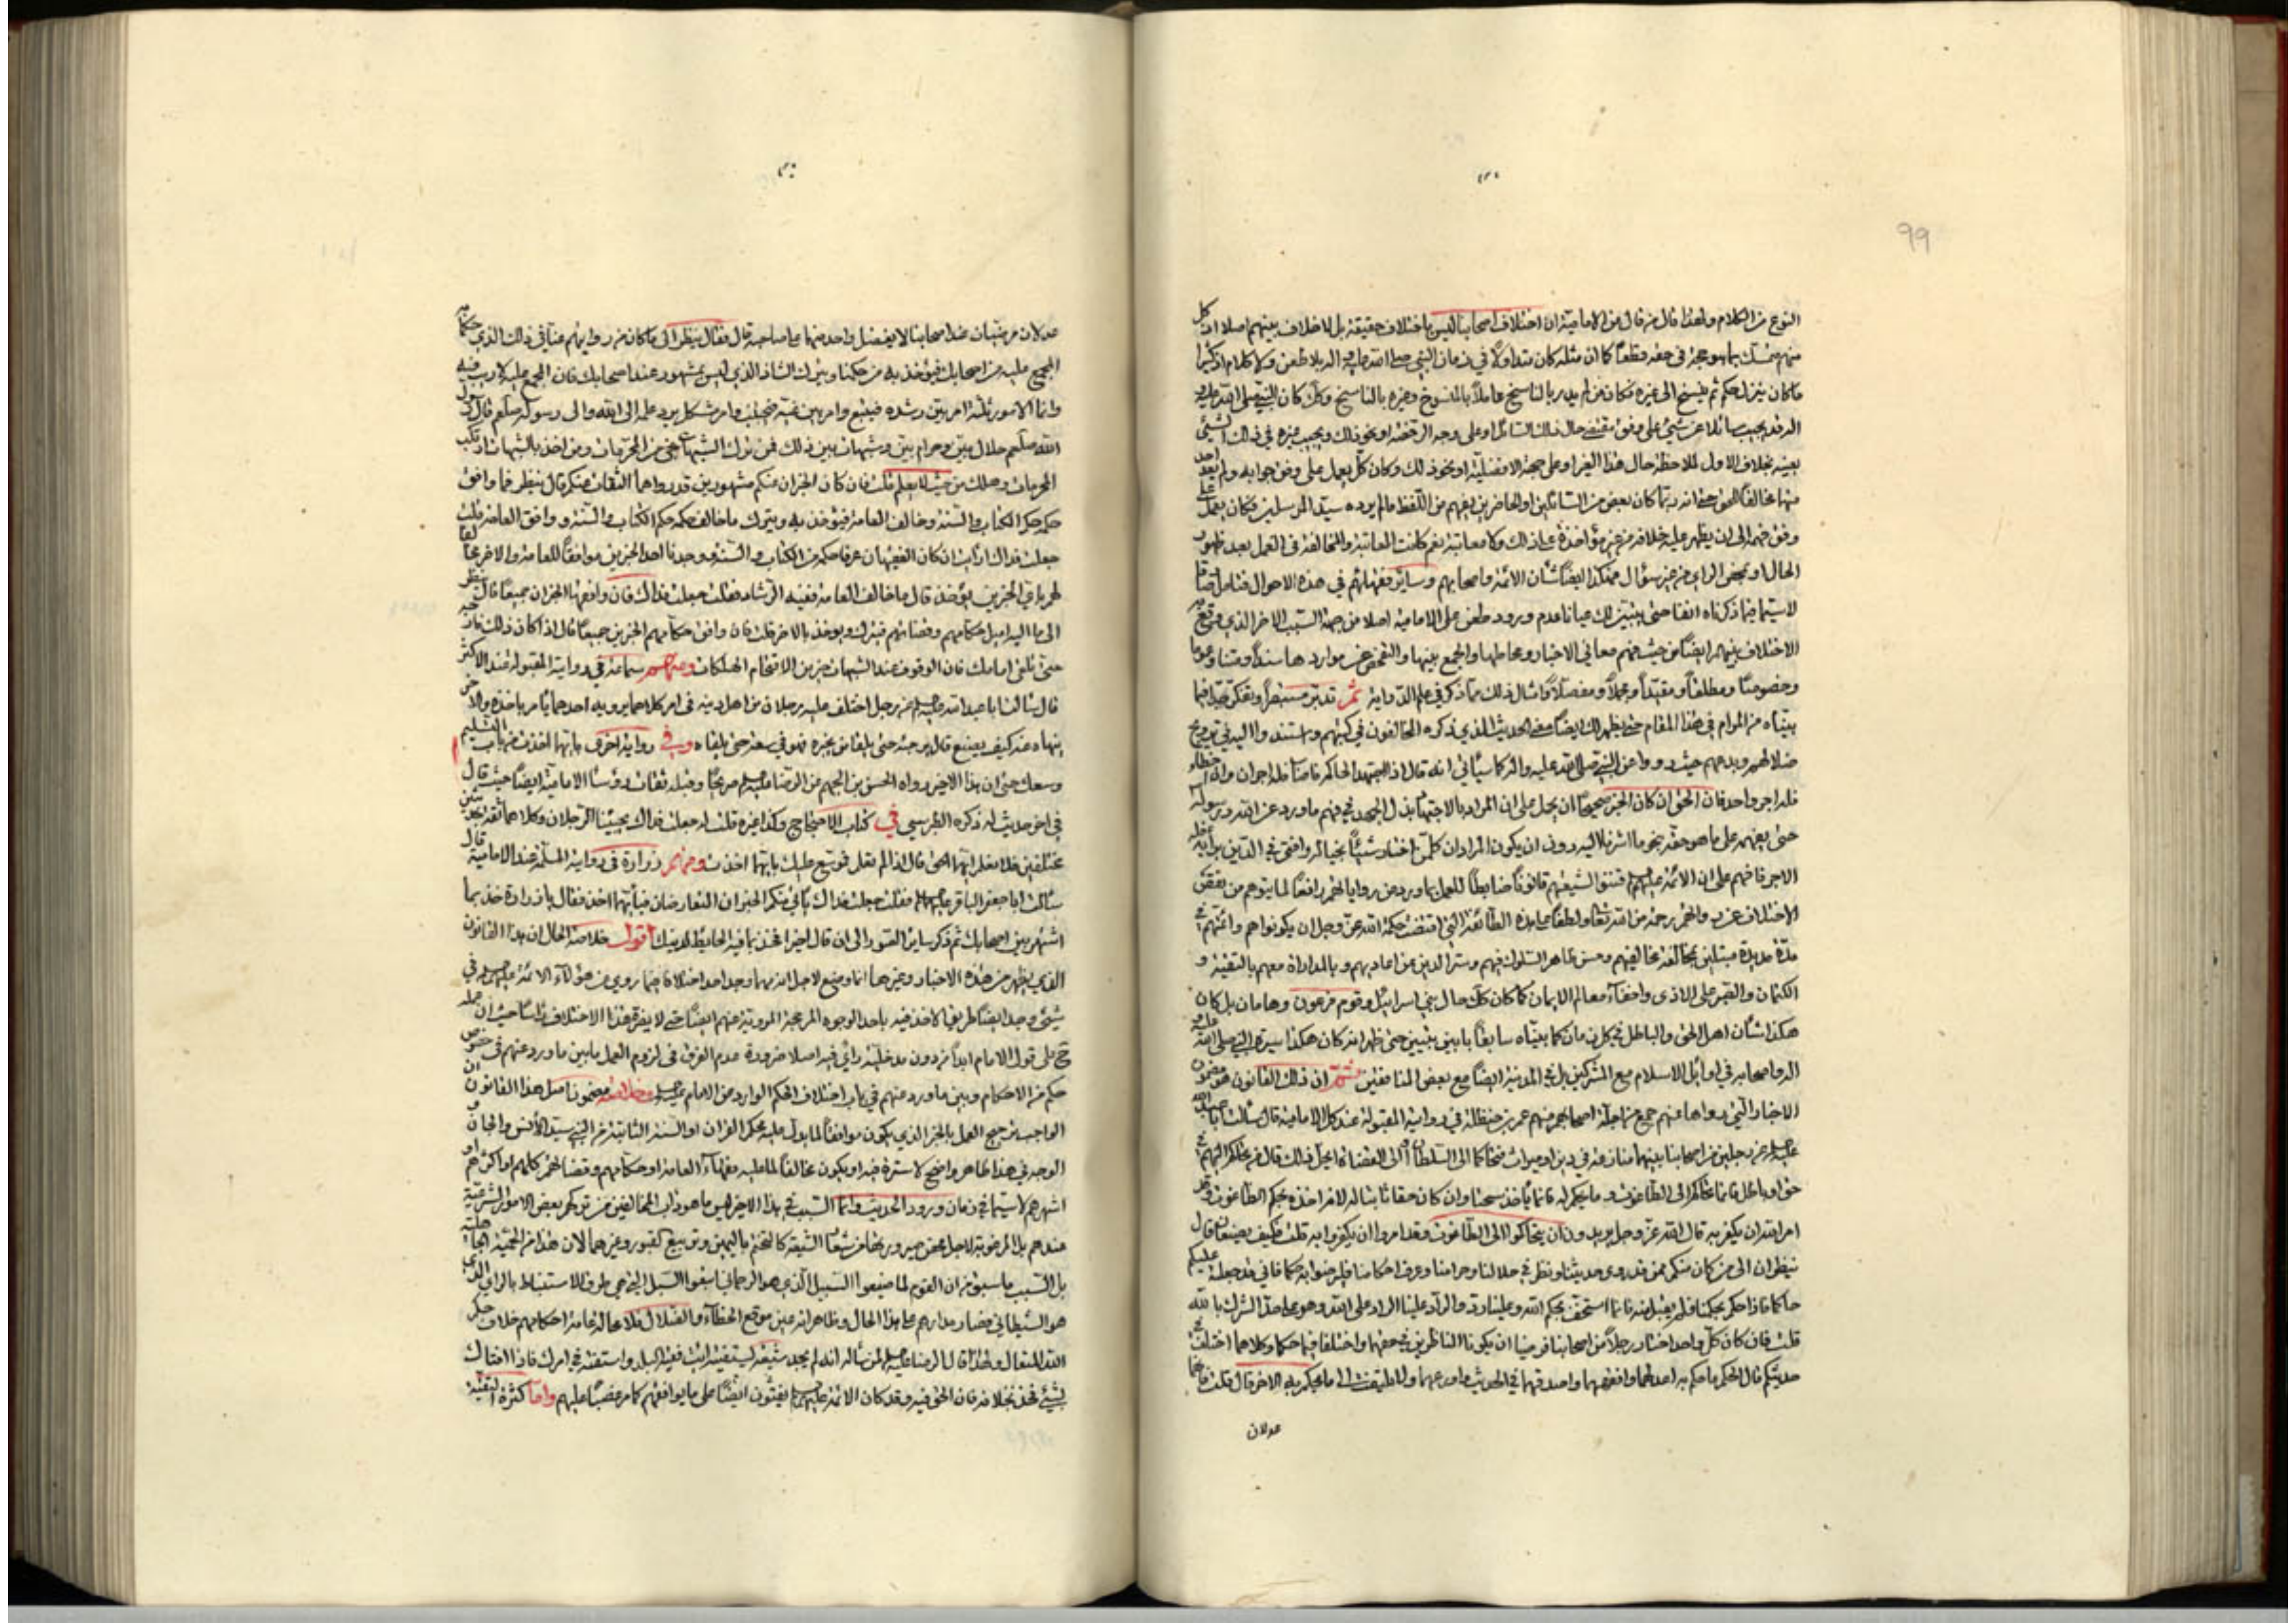 99
النوع من الكلام ولهذا قال من قال من الامامية ان اختلاف اصحابنا ليس باختلاف حقيقة بل لا خلاف بينهم اصلا اذ كل
منهم متمسك بما هو حجة في حقه قطعا كما ان مثله كان متداولا في زمان النبي صلى الله عليه واله بلا طعن ولا كلام اذ كثيرا
ما كان ينزل حكم ثم ينسخ الى غيره فكان من لم يدر بالناسخ عاملا بالمنسوخ وغيره بالناسخ وكذا كان النبي صلى الله عليه و
اله قد يجيب سائلا عن شيء على وفق مقتضى حال ذلك السائل او على وجه الرخصة او نحو ذلك ويجيب غيره في ذلك الشيء
بعينه بخلاف الاول لملاحظة حال هذا الغير او على جهة الافضلية او نحو ذلك وكان كل يعمل على وفق جوابه ولم يعد احد
منها مخالفا للحق حتى انه ربما كان بعض من السائلين او الحاضرين يفهم من اللفظ ما لم يرده سيد المرسلين فكان يعمل على
وفق فهمه الى ان يظهر عليه خلافه من غير مؤاخذة على ذلك ولا معاتبة نعم كانت المعاتبة والمخالفة في العمل بعد ظهور
الحال او بمحض الراي من غير سؤال فهكذا ايضا شأن الائمة واصحابهم وساير فقهائهم في هذه الاحوال فتامل صادقا
لا سيما فيما ذكرناه انفا حتى يتبين لك عيانا عدم ورود طعن على الامامية اصلا من جهة السبب الاخر الذي وقع به
الاختلاف بينهم ايضا من حيث فهم معاني الاخبار ومحاملها والجمع بينها والفحص عن مواردها سندا ومتنا وعموما
وخصوصا ومطلقا ومقيدا ومجملا ومفصلا وامثال ذلك مما ذكر في علم الدراية ثم تدبر مستبصرا وتفكر جيدا فيما
بيناه من المرام في هذا المقام حتى يظهر لك ايضا معنى الحديث الذي ذكره المخالفون في كتبهم واستندوا اليه في ترويج
ضلالتهم وبدعهم حيث رووا عن النبي صلى الله عليه واله كما سيأتي انه قال اذا اجتهد الحاكم فاصاب فله اجران وان اخطأ
فله اجر واحد فان الحق ان كان الخبر صحيحا ان يحمل على ان المراد بالاجتهاد بذل الجهد في فهم ما ورد عن الله ورسوله
حتى يفهم على ما هو حقه بنحو ما اشرنا اليه دون ان يكون المراد ان كل من اختار شيئا بخياله وافتى في الدين برأيه فله
الاجر فافهم على ان الائمة عليهم السلام قننوا لشيعتهم قانونا ضابطا للعمل بما ورد من رواياتهم رافعا لما يتوهم من نقص
الاختلاف عنه وانهم رحمة من الله تعالى ولطفا على هذه الطائفة التي اقتضت حكمة الله عز وجل ان يكونوا هم وائمتهم في
مدة مديدة مبتلين بمخالفة مخالفيهم وحسن ظاهر السلوك فيهم وستر الدين عن اعاديهم وبالمداراة معهم بالتقية و
الكتمان والصبر على الاذى واخفاء معالم الايمان كما كان كذلك حال بني اسرائيل وقوم فرعون وهامان بل كان
هكذا شأن اهل الحق والباطل في كل زمان كما بيناه سابقا بابين تبيين حتى ظهر انه كان هكذا سيرة النبي صلى الله عليه و
اله واصحابه في اوائل الاسلام مع المشركين بل في المدينة ايضا مع بعض المنافقين ثم ان ذلك القانون هو مضمون
الاخبار التي رواها عنهم جمع من اجلة اصحابهم منهم عمر بن حنظلة في روايته المقبولة عند كل الامامية قال سألت ابا عبد الله
عليه السلام عن رجلين من اصحابنا بينهما منازعة في دين او ميراث فتحاكما الى السلطان او الى القضاة ايحل ذلك قال من تحاكم اليهم في
حق او باطل فانما تحاكم الى الطاغوت وما يحكم له فانما يأخذ سحتا وان كان حقا ثابتا له لانه اخذه بحكم الطاغوت وقد
امر الله ان يكفر به قال الله عز وجل يريدون ان يتحاكموا الى الطاغوت وقد امروا ان يكفروا به قلت فكيف يصنعان قال
ينظران الى من كان منكم ممن قد روى حديثنا ونظر في حلالنا وحرامنا وعرف احكامنا فليرضوا به حكما فاني قد جعلته عليكم
حاكما فاذا حكم بحكمنا فلم يقبل منه فانما استخف بحكم الله وعلينا رد والراد علينا الراد على الله وهو على حد الشرك بالله
قلت فان كان كل واحد اختار رجلا من اصحابنا فرضيا ان يكونا الناظرين في حقهما واختلفا فيما حكما وكلاهما اختلفا في
حديثكم قال الحكم ما حكم به اعدلهما وافقههما واصدقهما في الحديث واورعهما ولا يلتفت الى ما يحكم به الاخر قال قلت فانهما
عدلان
عدلان مرضيان عند اصحابنا لا يفضل واحد منهما على صاحبه قال فقال ينظر الى ما كان من روايتهم عنا في ذلك الذي حكما به
المجمع عليه من اصحابك فيؤخذ به من حكمنا ويترك الشاذ الذي ليس بمشهور عند اصحابك فان المجمع عليه لا ريب فيه
وانما الامور ثلثة امر بين رشده فيتبع وامر بين غيه فيجتنب وامر مشكل يرد علمه الى الله والى رسوله صلعم قال رسول
الله صلعم حلال بين وحرام بين وشبهات بين ذلك فمن ترك الشبهات نجى من المحرمات ومن اخذ بالشبهات ارتكب
المحرمات وهلك من حيث لا يعلم قلت فان كان الخبران عنكم مشهورين قد رواهما الثقات عنكم قال ينظر فما وافق
حكمه حكم الكتاب والسنة وخالف العامة فيؤخذ به ويترك ما خالف حكمه حكم الكتاب والسنة ووافق العامة قلت
جعلت فداك ارايت ان كان الفقيهان عرفا حكمه من الكتاب والسنة ووجدنا احد الخبرين موافقا للعامة والاخر مخالفا
لهم باي الخبرين يؤخذ قال ما خالف العامة ففيه الرشاد فقلت جعلت فداك فان وافقهما الخبران جميعا قال ينظر
الى ما اليه اميل حكامهم وقضاتهم فيترك ويوخذ بالاخر قلت فان وافق حكامهم الخبرين جميعا قال اذا كان ذلك فارجه
حتى تلقى امامك فان الوقوف عند الشبهات خير من الاقتحام الهلكات ومنهم سماعة في روايته المقبولة عند الاكثر
قال سالت ابا عبد الله عليه السلام عن رجل اختلف عليه رجلان من اهل دينه في امر كلاهما يرويه احدهما يأمر باخذه والاخر
ينهاه عنه كيف يصنع قال يرجئه حتى يلقى من يخبره فهو في سعة حتى يلقاه وفي رواية اخرى بايهما اخذت من باب التسليم
وسعك حتى ان هذا الاخير رواه الحسن بن الجهم عن الرضا عليه السلام صريحا وقبله ثقات رؤسا الامامية ايضا حيث قال
في اخر حديث له ذكره الطبرسي في كتاب الاحتجاج وكذا غيره قلت له جعلت فداك يجيئنا الرجلان وكلاهما ثقة بحديثين
مختلفين فلا نعلم ايهما الحق قال اذا لم تعلم فموسع عليك بايهما اخذت ومنهم زرارة في روايته المسلمة عند الامامية قال
سألت ابا جعفر الباقر عليه السلام فقلت جعلت فداك يأتي عنكم الخبران المتعارضان فبأيهما اخذ فقال يا زرارة خذ بما
اشتهر بين اصحابك ثم ذكر ساير القيود الى ان قال اخيرا فخذ بما فيه الحايطة لدينك اقول خلاصة الحال ان هذا القانون
الذي يظهر من هذه الاخبار وغيرها انما وضع لاجل انه مهما وجد احد اختلافا فيما روي عن هؤلاء الائمة عليهم السلام في
شيء وجد ايضا طريقا لاخذ فيه باحد الوجوه المرجحة المروية عنهم ايضا حتى لا يضره هذا الاختلاف رأسا حيث ان عمله
ح على قول الامام ابدا من دون مدخلية رأي فيه اصلا ضرورة عدم الفرق في لزوم العمل ما بين ما ورد عنهم في خصوص
حكم من الاحكام وبين ما ورد عنهم في باب اختلاف الحكم الوارد عن الامام عليه السلام مضمون اصل هذا القانون ان
الواجب ترجيح العمل بالخبر الذي يكون موافقا لما يدل عليه محكم القران او السنة الثابتة من النبي سيد الانس والجان و
الوجه في هذا ظاهر واضح لا سترة فيه او يكون مخالفا لما عليه فقهاء العامة او حكامهم وقضاتهم كلهم او اكثرهم او
اشهرهم لا سيما في زمان ورود الحديث وانما السبب في هذا الاخير ليس ما هو دأب المخالفين من تركهم بعض الامور الشرعية
عندهم بل المرضوية لاجل محض صيرورتها من شعار الشيعة كالتختم باليمين وتربيع القبور وغيرهما لان هذا من الحمية الجاهلية
بل السبب ما سبق من ان القوم لما ضيعوا السبيل الذي هو الرحماني اتبعوا السبل التي هي طرق الاستنباط بالراي الذي
هو الشيطاني فصار مدارهم على هذا الحال وظاهر انه عين موقع الخطاء والضلال فلا محالة غامة احكامهم خلاف حكم
الله المتعال ولهذا قال الرضا عليه السلام لمن سأله انه لم يجد شيعة ليستفتيه ائت فقيه البلد واستفته في امرك فاذا افتاك
بشيء فخذ بخلافه فان الحق فيه وقد كان الائمة عليهم السلام يفتون ايضا على ما يوافقهم كما مر غصبا عليهم واما كثرة التقية